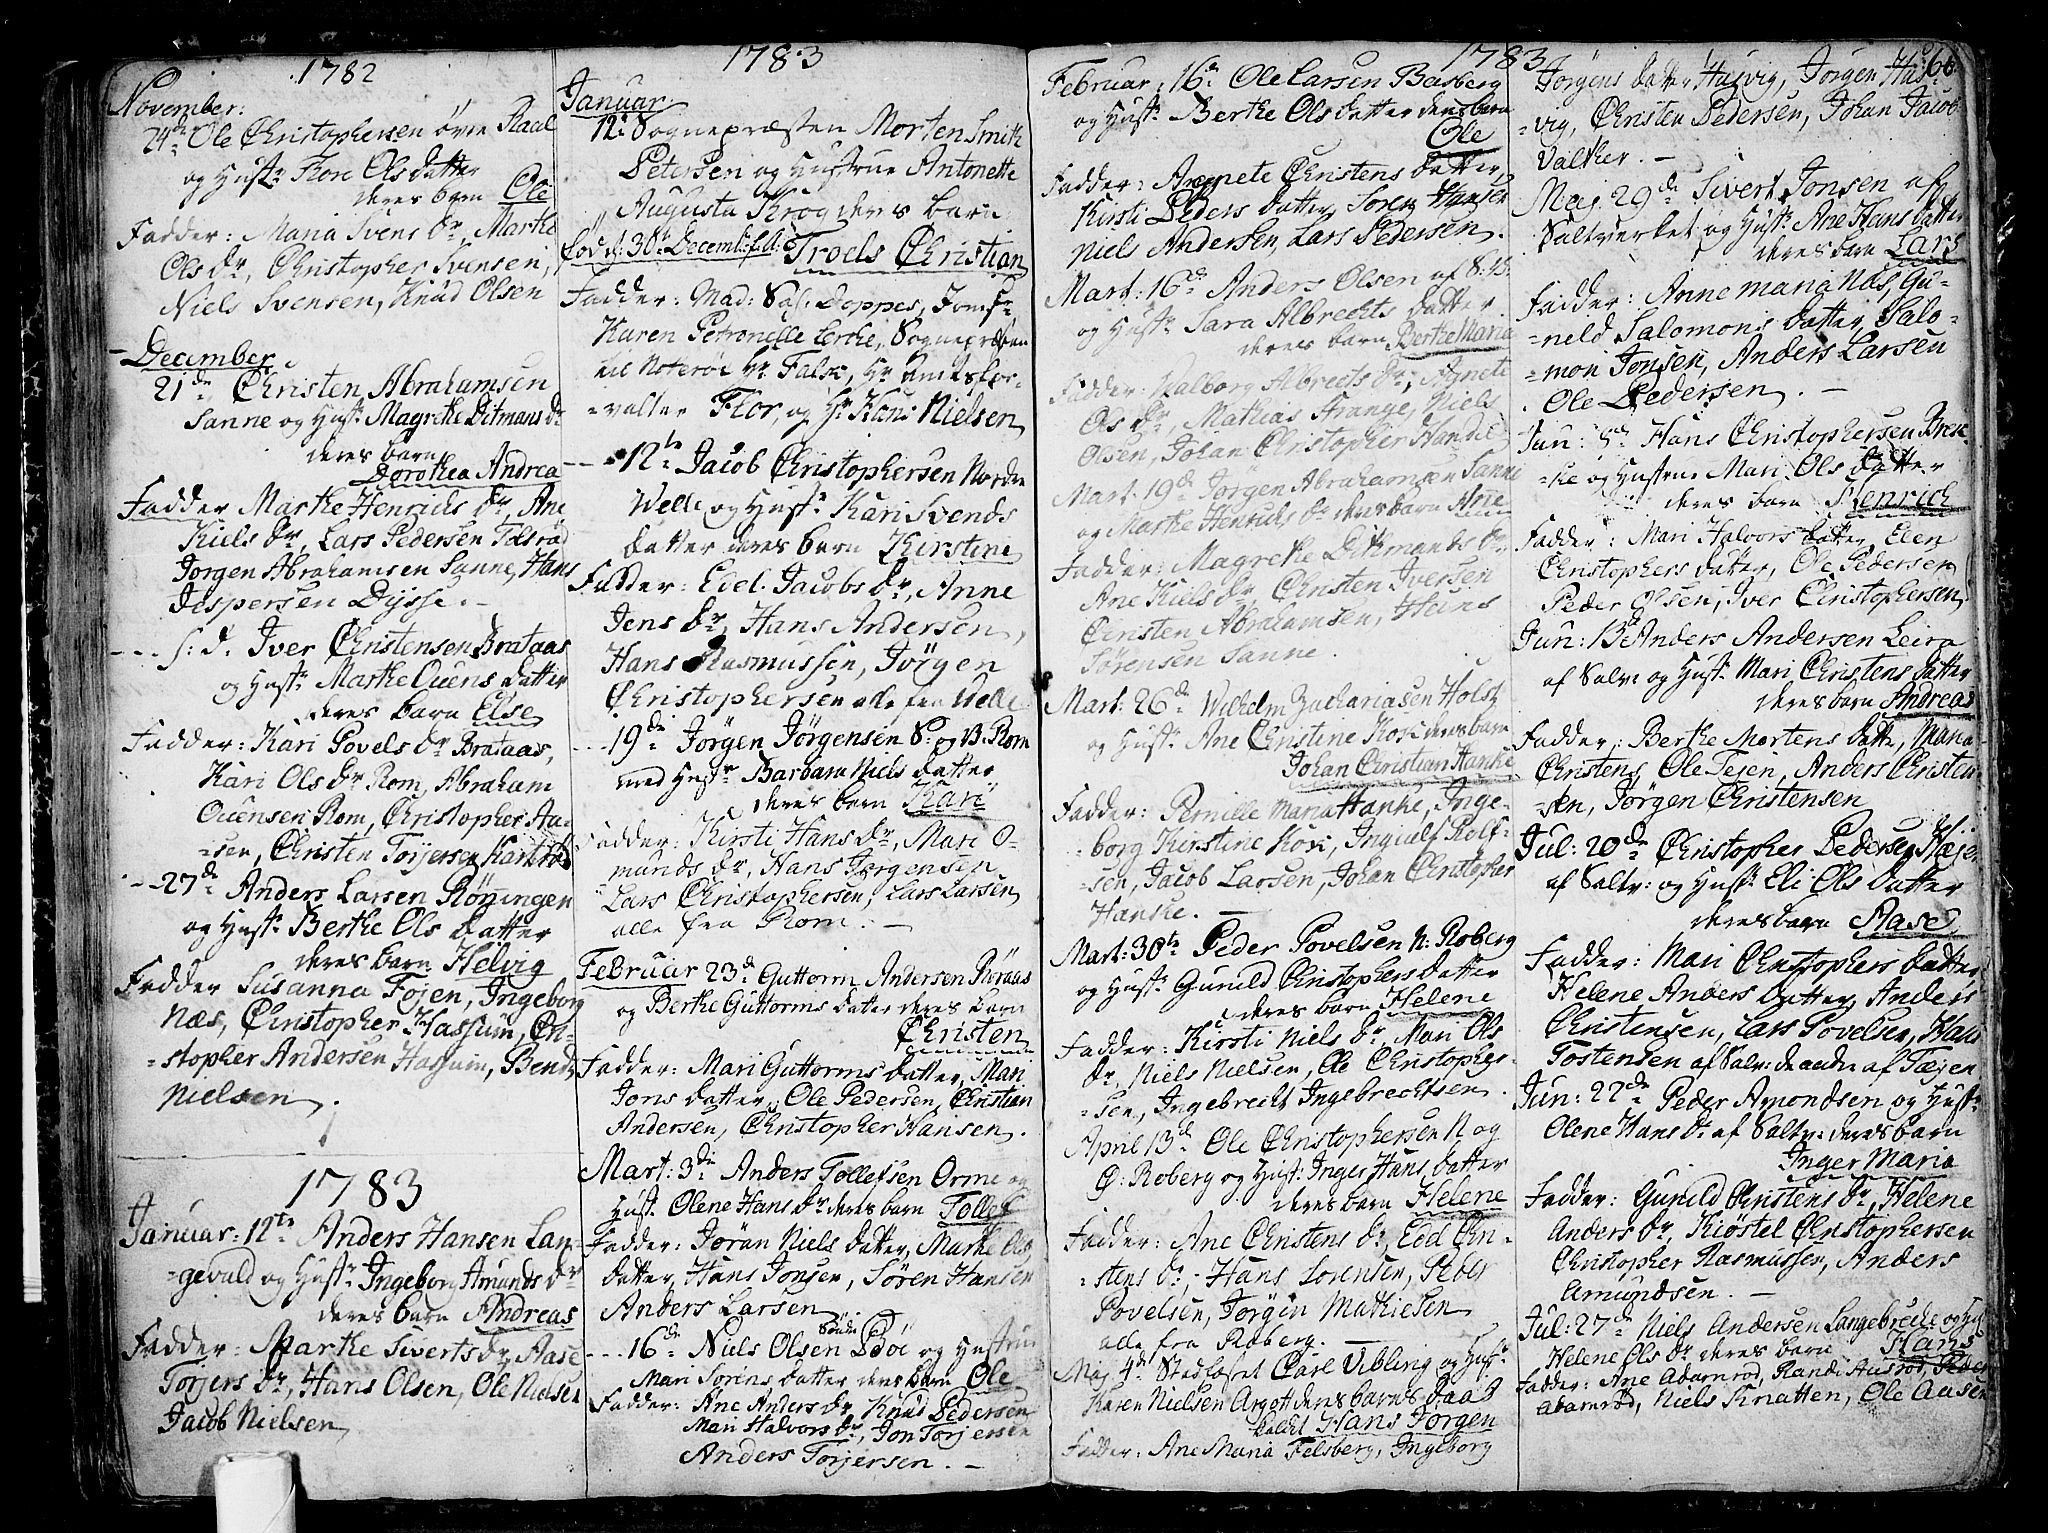 1782
November:
24de Ole Christophersen övre Raael
og Hustr Kore Olsdatter
deres barn Ole
Fadder: Maria Svens dr, Marthe
Ols dr, Christopher Svensen,
Niels Svensen, Knud Olsen
December
21de Christen Abrahamsen
Sanne og Hustr Magrethe Ditmans dr
deres barn
Dorothea Andrea
Fadder Marthe Henrichs dr, Ane
Kiels dr, Lars Pedersen Tolsrød
Jorgen Abrahamsen Sanne, Hans
Jespersen Dysse. -
s: d. Iver Christensen Brataas
og Hustr Marthe Ouens datter
deres barn Else
Fadder: Kari Povels dr Brataas,
Kari Ols dr Rom, Abraham
Ouensen Rom, Christopher An-
-sen, Christen Torjersen
27de Anders Larsen Röningen
og Hustr Berthe Ols datter
deres barn Helvig
Fadder Susanna Föjen, Ingeborg
Næs, Christopher Hassum, Chri-
-stopher Andersen Hassum, Bendt
Nielsen.
1783
Januar: 12te Anders Hansen Lan-
-gevald og Hustr Ingebor Amunds dr
deres barn Andreas
Fadder: Marthe Siverts dr, Aase
Torjers dr, Hans Olsen, Ole Nielsen
Jacob Nielsen
1783
Januar
12te Sognepræsten Morten Smith
Petersen og Hustrue Antonette
Augusta Krog deres barn
fød d: 30te Decemb: f. A. Troels Christian
Fadder: Mad: Sal: Doppes, Jomfr
Karen Petronelle Lerche, Sognepræsten
til Noterøe Hr Falch, Hr Amtsfor-
-valter Flor, og Hr Hans Nielsen
12te Jacob Christophersen Nordre
Welle og Hustr Kari Svends
datter deres barn Kirstine
Fadder: Edel Jacobs dr, Anne
Jens dr, Hans Andersen,
Hans Rasmussen, Jörgen
Christophersen alle fra Welle
19de Jörgen Jörgensen S: og V. Rom
med Hustr Barbara Niels datter
deres barn Kari
Fadder: Kirsti Hans dr, Mari O-
munds dr, Hans Jorgensen
Lars Christophersen, Lars Larsen
alle fra Rom. -
Februar 23d Guttorm Andersen Röraas
og Berthe Guttorms datter deres barn
Christen
Fadder: Mari Guttorms datter, Mari
Jons datter, Ole Pedersen, Christian
Andersen, Christopher Hansen.
Mart: 3die Anders Tollefsen Orme og
Hust. Olene Hans dr deres barn Tollef
Fadder: Jöran Niels datter, Marthe Ols
datter, Hans Jonsen, Sören Hansen
Anders Larsen
16de Niels Olsen Söndr Böe og Hustrue
Mari Sörens datter deres barn Ole
Fadder: Ane Anders dr, Knud Pedersen
Mari Halvors dr, Jon Torjersen
Anders Torjersen. -
1783
Februar: 16de Ole Larsen Basberg
og Hustr Berthe Ols datter deres barn
Ole
Fadder: Agnete Christens datter,
Kirsti Peders datter, Soren Hansen
Niels Andersen, Lars Pedersen.
Mart: 16de Anders Olsen af S: V:
og Hustr Sara Albrechts datter
deres barn Berthe Maria
Fadder: Walborg Albrects dr, Agnete
Ols dr, Mathias Strange, Niels
Olsen, Johan Christopher Handel
Mart: 19de Jörgen Abrahamsen Sanne
og Marthe Henrichs dr deres barn Ane
Fadder: Magrethe Ditmands dr
Ane Kiels dr Christen Iversen
Christen Abrahamsen, Hans
Sörensen Sanne.
Mart: 26de Wilhelm Zachariasen Holst
og Hustr Ane Christine Koss deres barn
Johan Christian Hanke
Fadder: Pernille Maria Hanke, Inge-
borg Kirstine Koss, Ingvald Rolf-
-sen, Jacob Larsen, Johan Christopher
Hanke. -
Mart: 30te Peder Povelsen N: Roberg
og Hustr Gunild Christophersdatter
deres barn Helene
Fadder: Kirsti Niels dr, Mari Ols
dr, Niels Nielsen, Ole Christopher-
-sen, Ingebrecht Ingebrechtsen.
April 13d Ole Christophersen N og
Ø: Roberg og Hustr: Inger Hans datter
deres barn Helene
Fadder: Ane Christens dr, Edel Chri-
-stens dr, Hans Sorensen, Peder
Povelsen, Jörgen Mathiesen
alle fra Roberg. -
Maj 4de Carl Vibling og Hustr
Karen Nielsen Argott deres barns Daab
kaldet Hans Jorgen
Fadder: Ane Maria Felsberg, Ingeborg
66
Jorgens datter Husvig, Jorgen Hus-
-vig, Christen Pedersen, Johan Jacob
Valther. -
Maj 29de Sivert Jonsen af
Saltverket og Hustr Ane Hans datter
deres barn Lars
Fadder: Anne Maria Næs, Gu-
-neld Salomons datter, Salo-
-mon Jonsen, Anders Larsen
Ole Pedersen. -
Jun: 8de Hans Christophersen Brek-
-ke og Hustrue Mari Ols datter
deres barn Henrich
Fadder: Mari Halvors datter, Elen
Christophers datter, Ole Pedersen
Peder Olsen, Iver Christophersen
Jun: Anders Andersen Leira
af Salv: og Hustr Mari Christens datter
deres barn Andreas
Fadder: Berthe Mortens datter, Maria
Christens, Ole Tejen, Anders Christen-
-sen, Jörgen Christensen
Jul: 20de Christopher Pedersen Höjen
af Saltv: og Hustr Eli Ols datter
deres barn Aase
Fadder: Mari Christophers datter
Helene Anders datter, Anders
Christensen, Lars Povelsen, Hans
Tostensen af Salv: de andre af Tæjen
Jun: 22de Peder Amondsen og Hustr
Olene Hans dr af Saltv: deres barn
Inger Maria
Fadder: Gunild Christens dr, Helene
Anders dr, Kiøstel Christophersen
Christopher Rasmussen, Anders
Amundsen. -
Jul: 27de Niels Andersen Langebrede og Hustr
Helene Ols dr deres barn Hans
Fadder: Ane Adamrød, Randi Ausrød, Peder
Adamrød, Niels Knatten, Ole Aasen